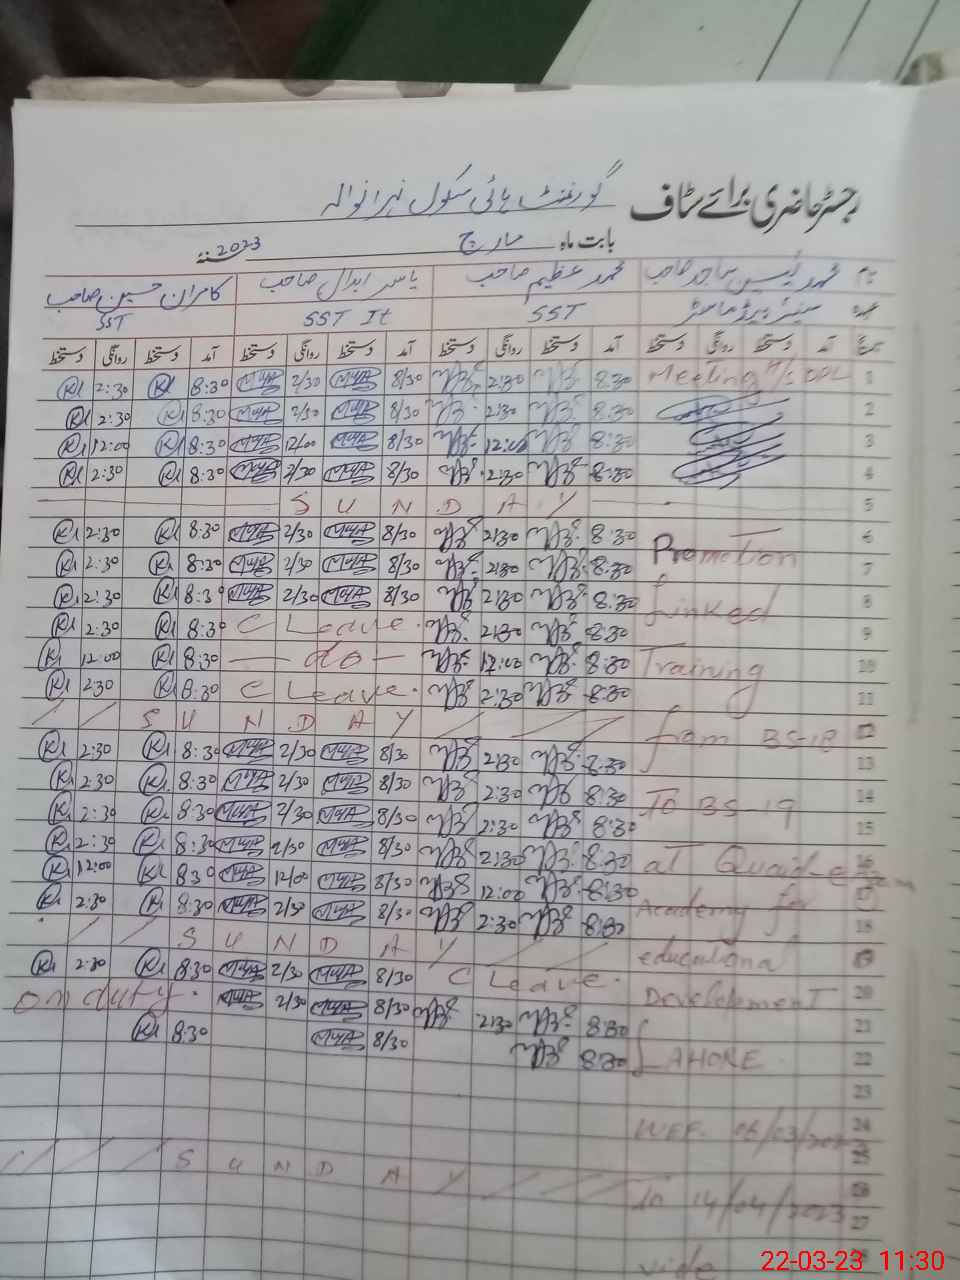 رجسٹر حاضری برائے سٹاف گورنمنٹ ہائی سکول نہرانوالہ
بابت ماہ مارچ 2023ء
نام محمد رئیس ساجد صاحب محمد عظیم صاحب یاسر ابدال صاحب کامران حسین صاحب
عہدہ سینئر ہیڈ ماسٹر SST SST It SST
تاریخ آمد دستخط روانگی دستخط آمد دستخط روانگی دستخط آمد دستخط روانگی دستخط آمد دستخط روانگی دستخط
K1 2:30 K1 8:30 MYA 2/30 MYA 8/30 2:30 8:30 Meeting 1
K1 2:30 K1 8:30 MYA 2/30 MYA 8/30 2:30 8:30 2
K1 12:00 K1 8:30 MYA 12/00 MYA 8/30 12:00 8:30 3
K1 2:30 K1 8:30 MYA 2/30 MYA 8/30 2:30 8:30 4
SUNDAY 5
K1 2:30 K1 8:30 MYA 2/30 MYA 8/30 2:30 8:30 Promotion 6
K1 2:30 K1 8:30 MYA 2/30 MYA 8/30 2:30 8:30 7
K1 2:30 K1 8:30 MYA 2/30 MYA 8/30 2:30 8:30 Linked 8
K1 2:30 K1 8:30 C Leave. 2:30 8:30 9
K1 12:00 K1 8:30 — do — 12:00 8:30 Training 10
K1 2:30 K1 8:30 C Leave. 2:30 8:30 11
SUNDAY from BS-18 12
K1 2:30 K1 8:30 MYA 2/30 MYA 8/30 2:30 8:30 13
K1 2:30 K1 8:30 MYA 2/30 MYA 8/30 2:30 8:30 To BS-19 14
K1 2:30 K1 8:30 MYA 2/30 MYA 8/30 2:30 8:30 15
K1 2:30 K1 8:30 MYA 2/30 MYA 8/30 2:30 8:30 at Quaid-e 16
K1 12:00 K1 8:30 MYA 12/00 MYA 8/30 12:00 8:30 17
K1 2:30 K1 8:30 MYA 2/30 MYA 8/30 2:30 8:30 Academy for 18
SUNDAY educational 19
K1 2:30 K1 8:30 MYA 2/30 MYA 8/30 C Leave. Development 20
on duty. MYA 2/30 MYA 8/30 2:30 8:30 21
K1 8:30 MYA 8/30 8:30 LAHORE 22
23
WEF. 06/03/2023 24
25
SUNDAY 26
To 14/04/2023 27
vide
22-03-23 11:30